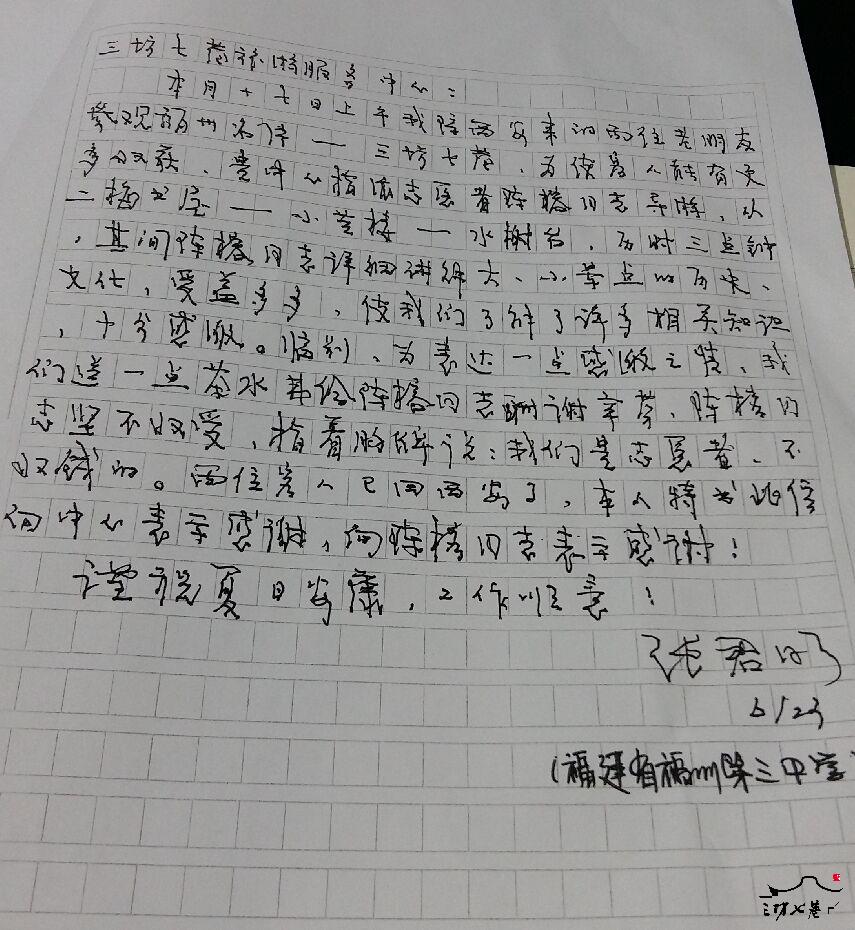 三坊七巷旅游服务中心：
本月十七日上午我陪西安来的两位老朋友
参观福州名片——三坊七巷，为使客人能有更
多的收获，贵中心指派志愿者陈榕同志导游，从
二梅书屋——小黄楼——水榭台，历时三点钟
，其间陈榕同志详细讲解大、小景点的历史、
文化，受益多多，使我们了解了许多相关知识
，十分感激。临别，为表达一点感激之情，我
们送一点茶水费给陈榕同志酬谢辛劳，陈榕同
志坚不收受，指着胸牌说：我们是志愿者，不
收钱的。两位客人已回西安了，本人特书此信
向中心表示感谢，向陈榕同志表示感谢！
谨祝夏日安康，工作顺意！
张君
6/23
(福建省福州第三中学
三坊七巷